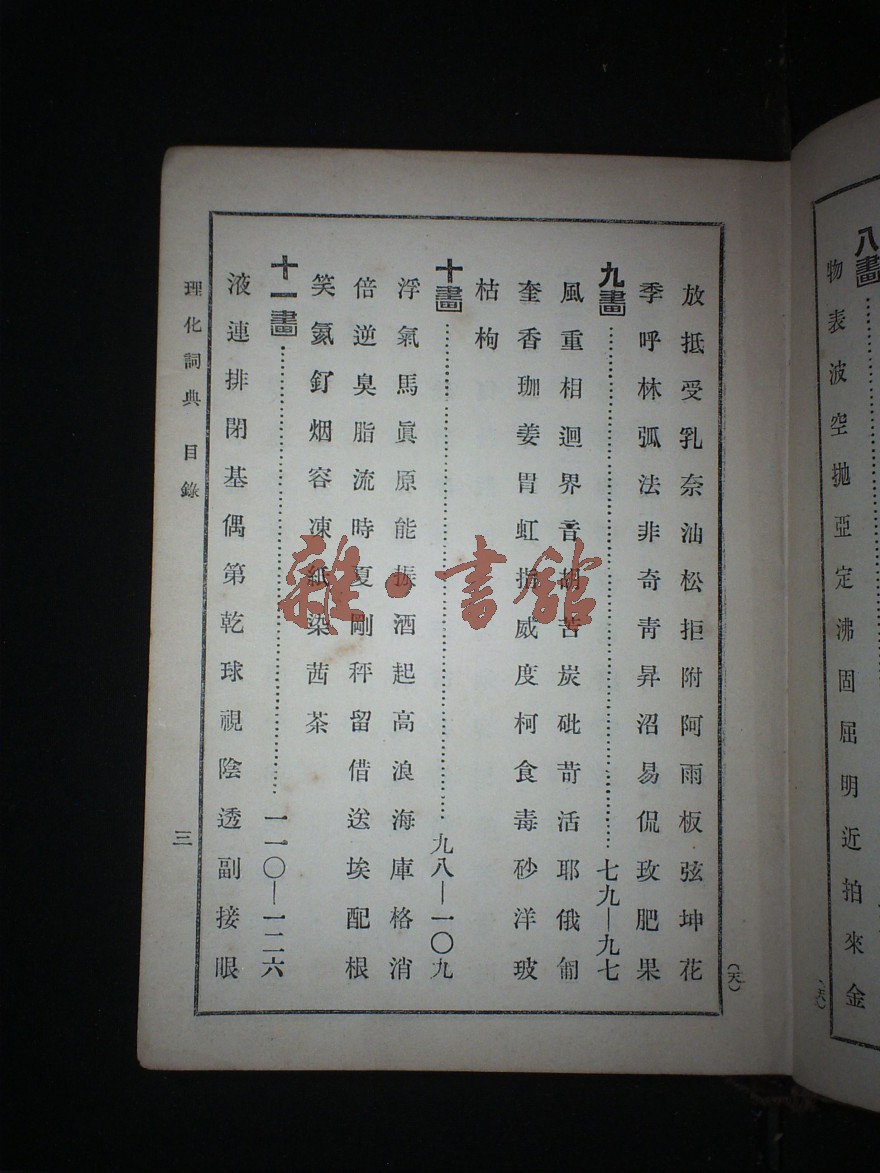 八畫
物表波空拋亞定沸固屈明近拍來金
放抵受乳奈油松拒附阿雨板弦坤花
季呼林弧法非奇靑昇沼易侃玫肥果
九畫 七九—九七
風重相迴界音胡苦炭砒苛活耶俄
奎香珈姜胃虹指威度柯食毒砂洋玻
枯枸
十畫 九八—一〇九
浮氣馬眞原能振酒起高浪海庫格消
倍逆臭脂流時夏剛秤留借送埃配根
笑氦釘烟容凍紙染茜茶
十一畫 一一〇—一二六
液連排閉基偶第乾球視陰透副接眼
理化詞典 目錄
三
雜·書館